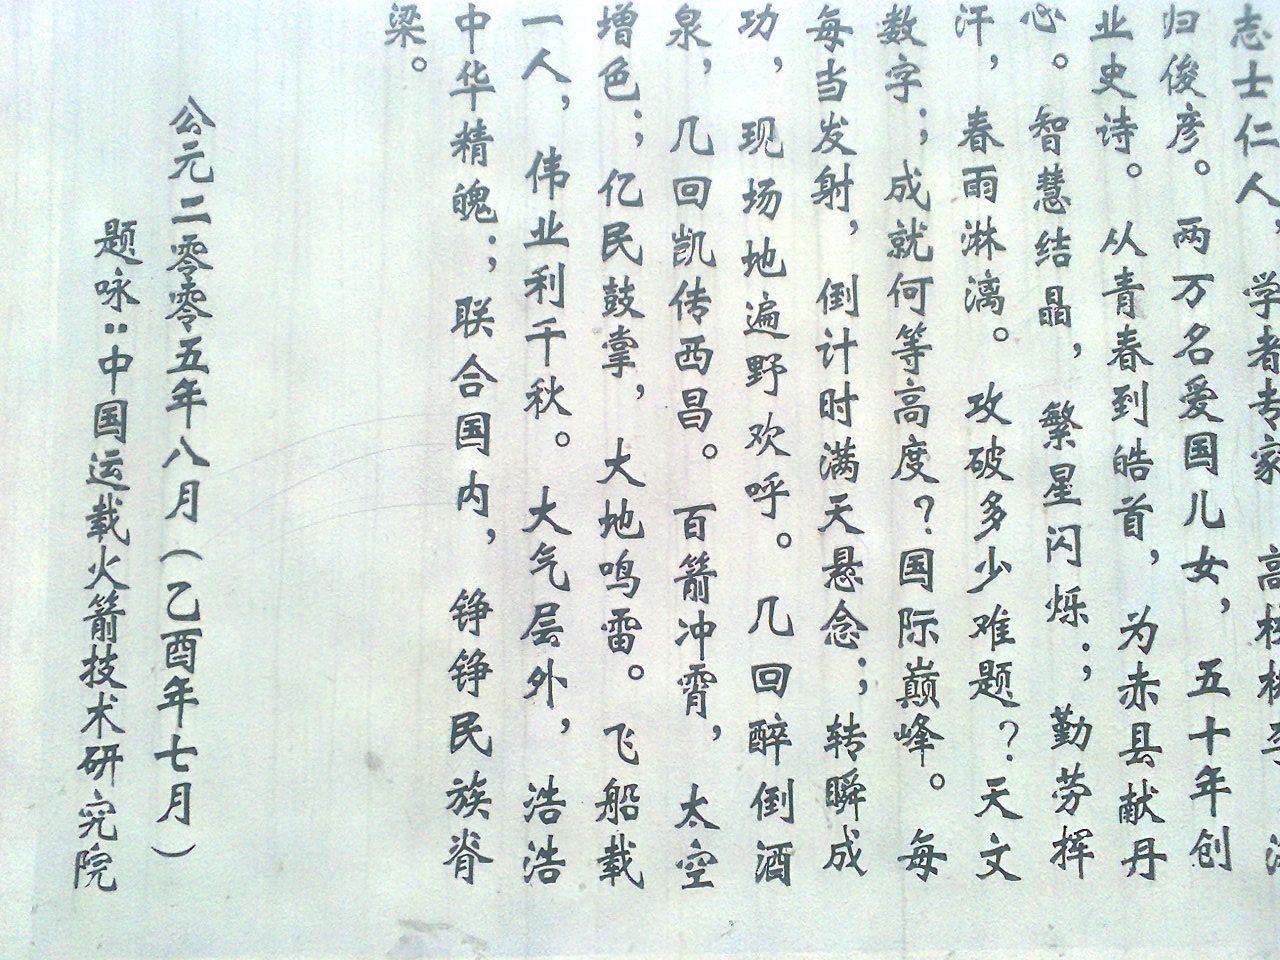 志士仁人，学者专家
归俊彦。两万名爱国儿女，五十年创
业史诗。从青春到皓首，为赤县献丹
心。智慧结晶，繁星闪烁；勤劳挥
汗，春雨淋漓。攻破多少难题？天文
数字；成就何等高度？国际巅峰。每
每当发射，倒计时满天悬念；转瞬成
功，现场地遍野欢呼。几回醉倒酒
泉，几回凯传西昌。百箭冲霄，太空
增色；亿民鼓掌，大地鸣雷。飞船载
一人，伟业利千秋。大气层外，浩浩
中华精魄；联合国内，铮铮民族脊
梁。
公元二零零五年八月（乙酉年七月）
题咏：中国运载火箭技术研究院